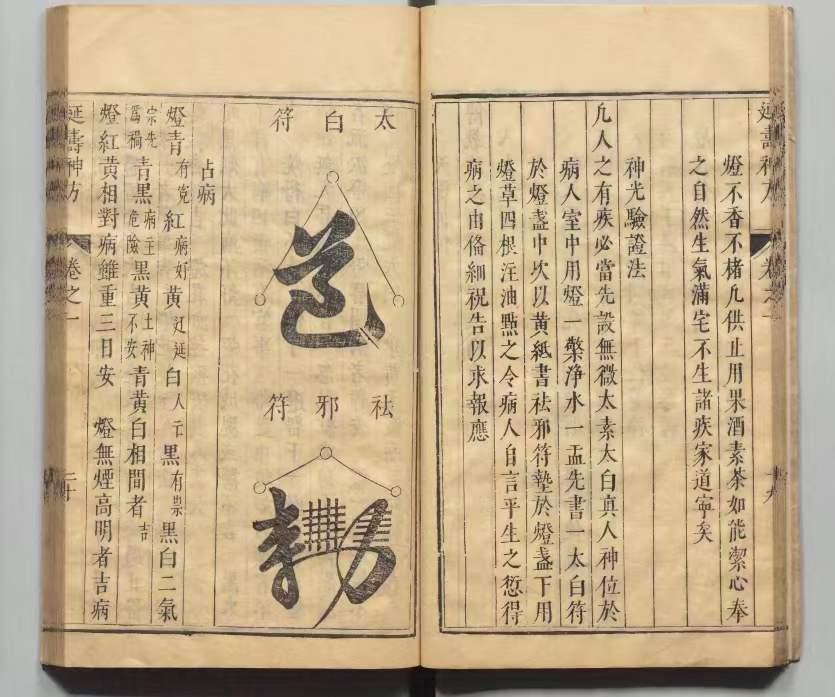 延壽神方 卷之一 十九
燈不香不楮凢供止用果酒素茶如能潔心奉
之自然生氣滿宅不生諸疾家道寧矣
神光驗證法
凢人之有疾必當先設無微太素大白真人神位於
病人室中用燈一檠淨水一盂先書一太白符
於燈盞中坎以黄紙書祛邪符墊於燈盞下用
燈草四根注油㸃之令病人自言平生之愆得
病之由俻細祝告以求報應
太白符
祛邪符
占病
燈青有寃紅病好黄迍延白人亡黒有祟黒白二氣
宗先爲禍青黒病主危險黒黄土神不安青黄白相間者吉
燈紅黄相對病雖重三日安 燈無煙高明者吉病
延壽神方 卷之一 二十